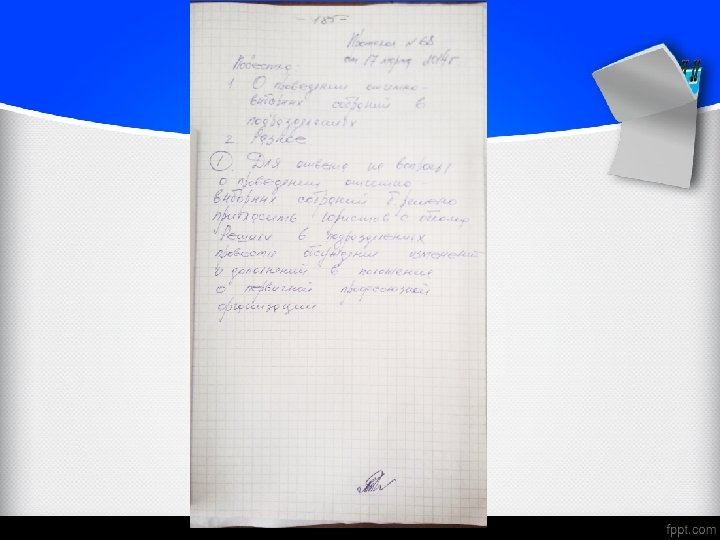 - 185 -
Протокол № 68
от 17 марта 2014 г
Повестка:
1. О проведении отчетно-
выборных собраний в
подразделениях
2. Разное
1. Для ответа на вопросы
о проведении отчетно-
выборных собраний б. решено
пригласить юристов с
Решили в подразделениях
провести обсуждение изменений
и дополнений в положение
о первичной профсоюзной
организации
fppt.com